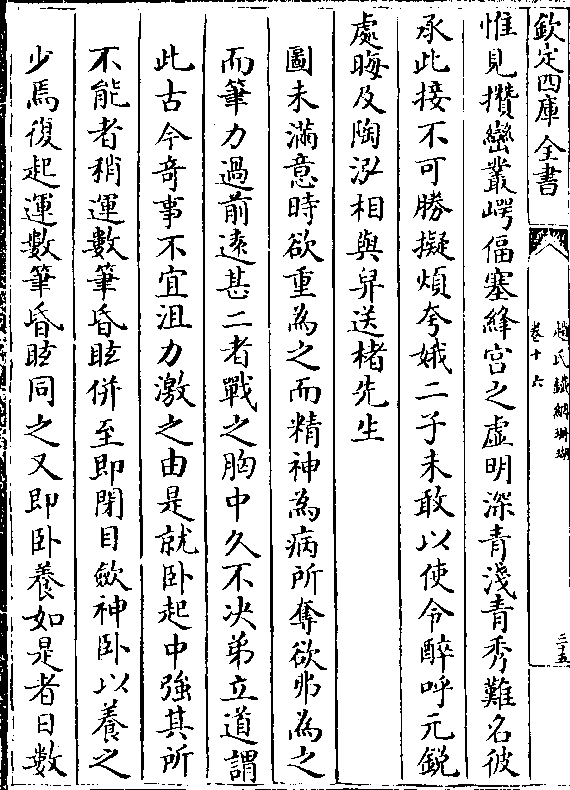 欽定四庫全書
趙氏鐵網珊瑚
卷十六
三十五
惟見攢巒叢崿偪塞絳宫之虚明深青淺青秀難名彼
承此接不可勝擬煩夸娥二子未敢以使令醉呼元鋭
處晦及陶泓相與舁送楮先生
圖未滿意時欲重為之而精神為病所奪欲弗為之
而筆力過前逺甚二者戰之胸中久不決弟立道謂
此古今竒事不宜沮力激之由是就卧起中強其所
不能者稍運數筆昏眩併至即閉目歛神卧以養之
少焉復起運數筆昏眩同之又即卧養如是者日數